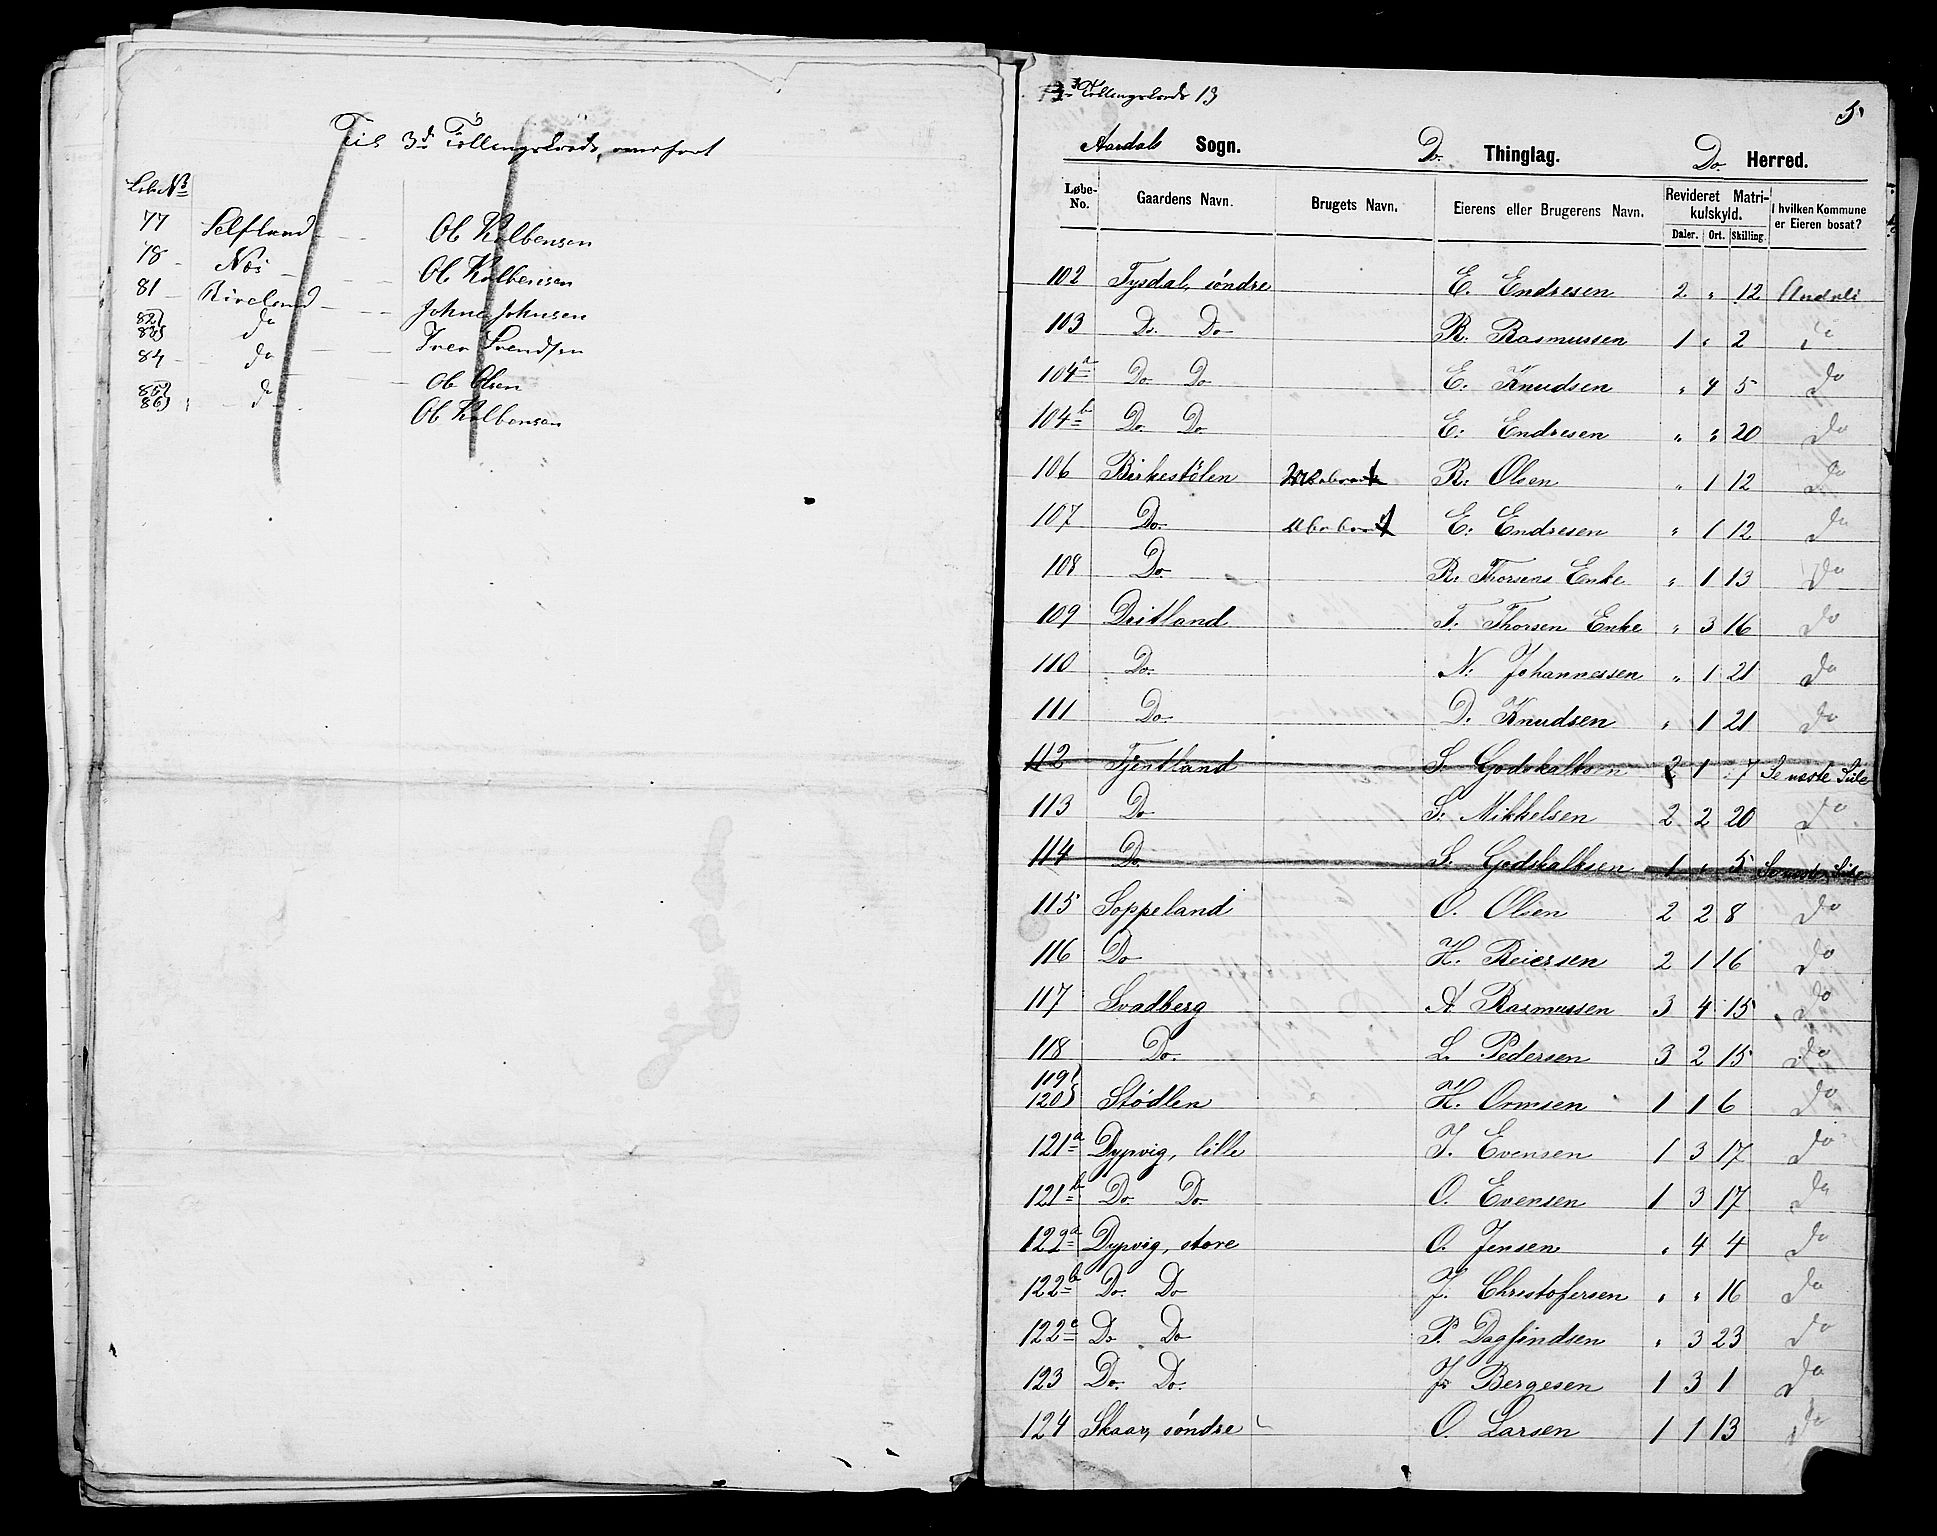 Til 3d Tællingskreds, overført
Løb No
77 Selfland Ob Kolbensen
78 Næs Ob Kolbensen
81 Riveland Johne Johnsen
82)
83) do Iver Svendsen
84 do Ob Olsen
85)
86) d Ob Kolbensen
3 Tællingskreds 13
5
Aardals Sogn. Do. Thinglag. Do. Herred.
Løbe-No. Gaardens Navn. Brugets Navn. Eierens eller Brugerens Navn. Revideret Matrikulskyld. I hvilken Kommune er Eieren bosat?
Daler. Ort. Skilling
102 Tysdal, söndre E. Endresen 2 " 12 Aardal
103 Do. Do R. Rasmussen 1 " 2 do
104a Do Do E. Knudsen " 4 5 do
104b Do Do. E. Endresen " " 20 do
106 Birkestölen R. Olsen " 1 12 do
107 Do. E. Endresen " 1 12 do
108 Do R. Thorsens Enke " 1 13 do
109 Dritland T. Thorsen Enke " 3 16 do
110 Do. N. Johannessen " 1 21 do
111 Do D. Knudsen " 1 21 do
112 Fjentland S. Godskalksen 2 1 7 Se næste Side
113 Do S. Mikkelsen 2 2 20 do
114 Do S. Godskalksen 1 " 5 Se næste Side
115 Soppeland O. Olsen 2 2 8 do
116 Do H. Reiersen 2 1 16 do
117 Svadberg A. Rasmussen 3 4 15 do
118 Do. L. Pedersen 3 2 15 do
119)
120) Stödlen H. Ormsen 1 1 6 do
121a Dypvig, lille J. Evensen 1 3 17 do
121b Do. Do. O. Evensen 1 3 17 do
122a Dypvig, store O. Jensen " 4 4 do
122b Do. Do J. Christofersen " " 16 do
122c Do Do P. Dagfindsen " 3 23 do
123 Do. Do. J. Bergesen 1 3 1 do
124 Skaar, söndre O. Larsen 1 1 13 do